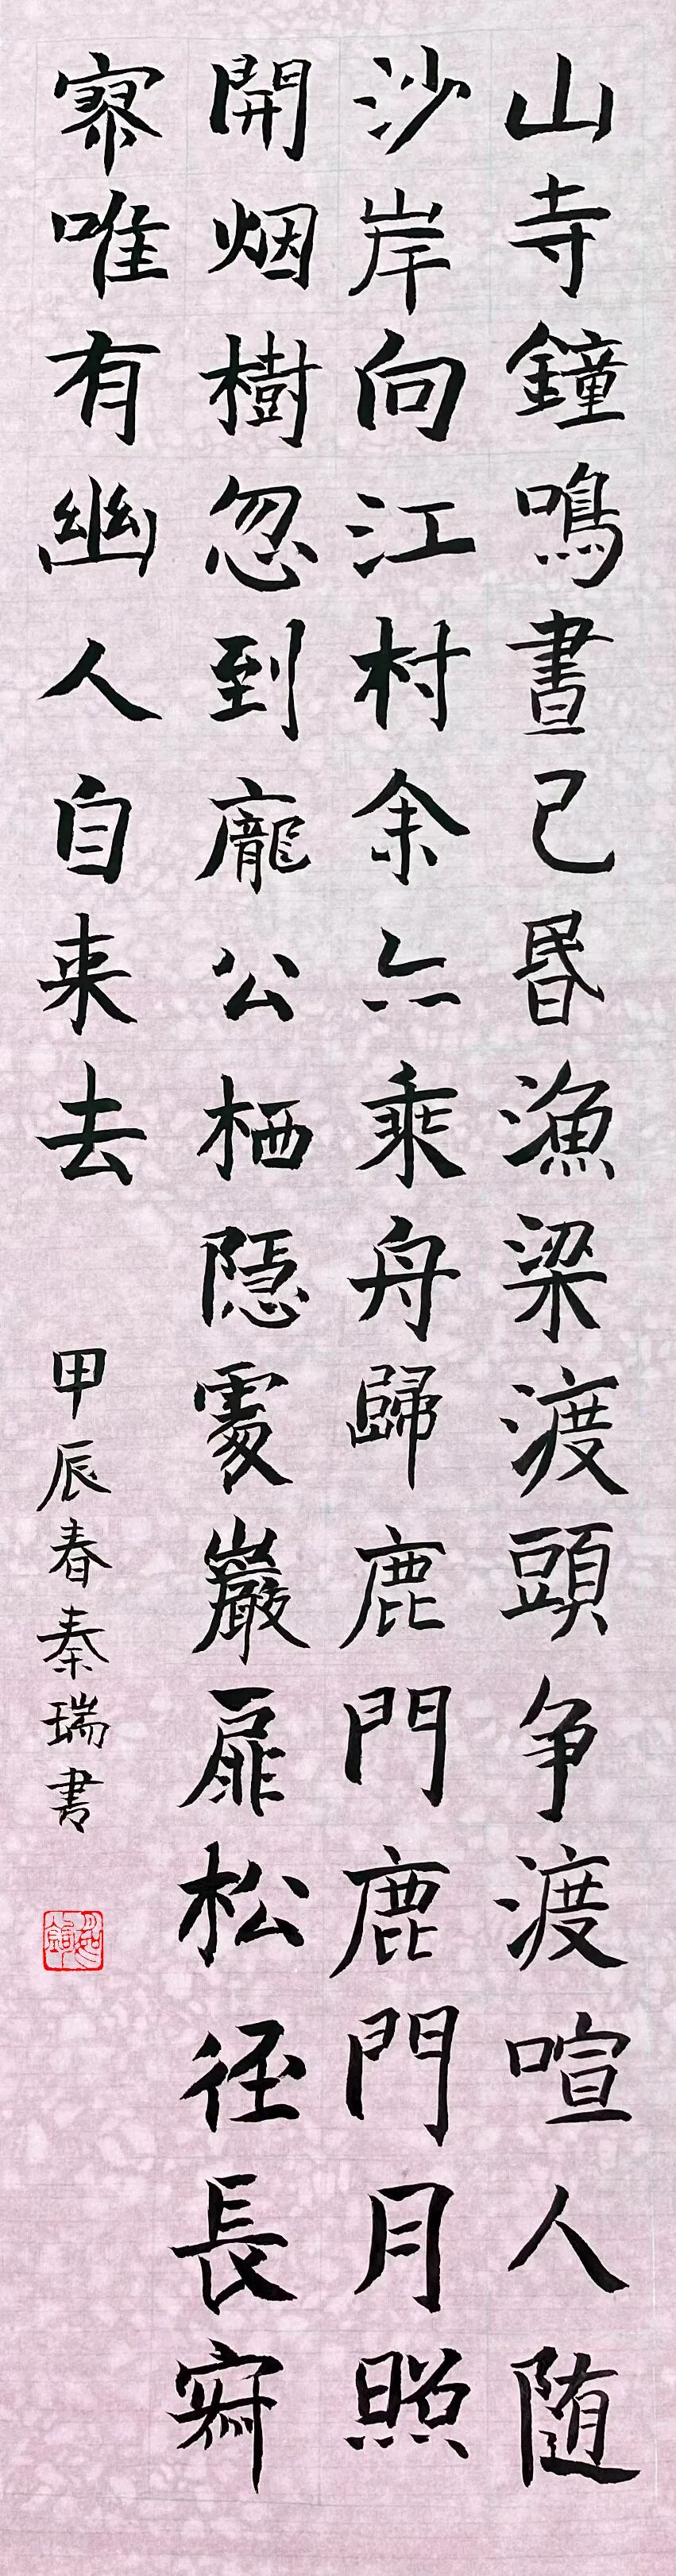 山寺鐘鳴晝已昏漁梁渡頭争渡喧人随
沙岸向江村余亦乘舟歸鹿門鹿門月照
開烟樹忽到龐公栖隠處巖扉松徑長寂
寥唯有幽人自来去
甲辰春秦瑞書